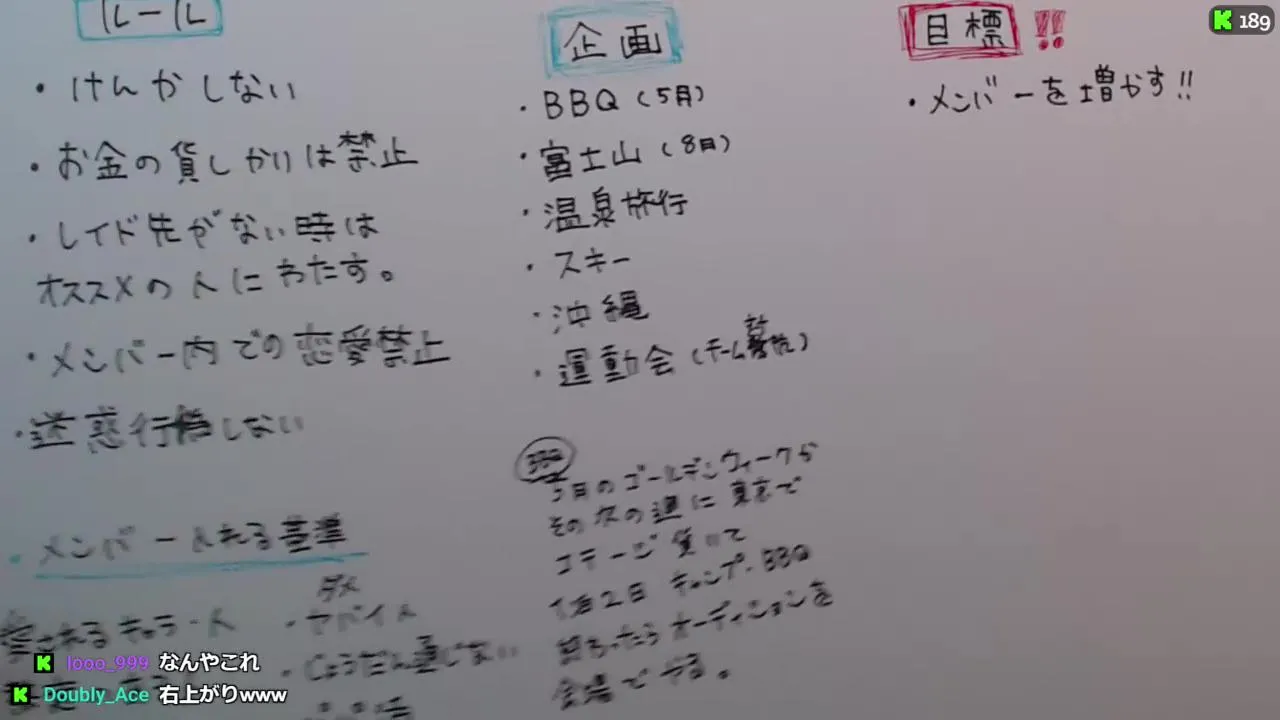 ルール
・けんかしない
・お金の貸しかりは禁止
・レイド先がない時は
オススメの人にわたす。
・メンバー内での恋愛禁止
・迷惑行為しない
・メンバー入れる基準
愛されるキャラ・人
ダメ
・ヤバイ人
・じょうだん通じない
企画
・BBQ(5月)
・富士山(8月)
・温泉旅行
・スキー
・沖縄
・運動会(チーム対抗)
BBQ
5月のゴールデンウィークか
その次の週に東京で
コテージ借りて
1泊2日 キャンプ・BBQ
オーディションを
会場でやる。
目標!!
・メンバーを増やす!!
189
looo_999 なんやこれ
Doubly_Ace 右上がりwww